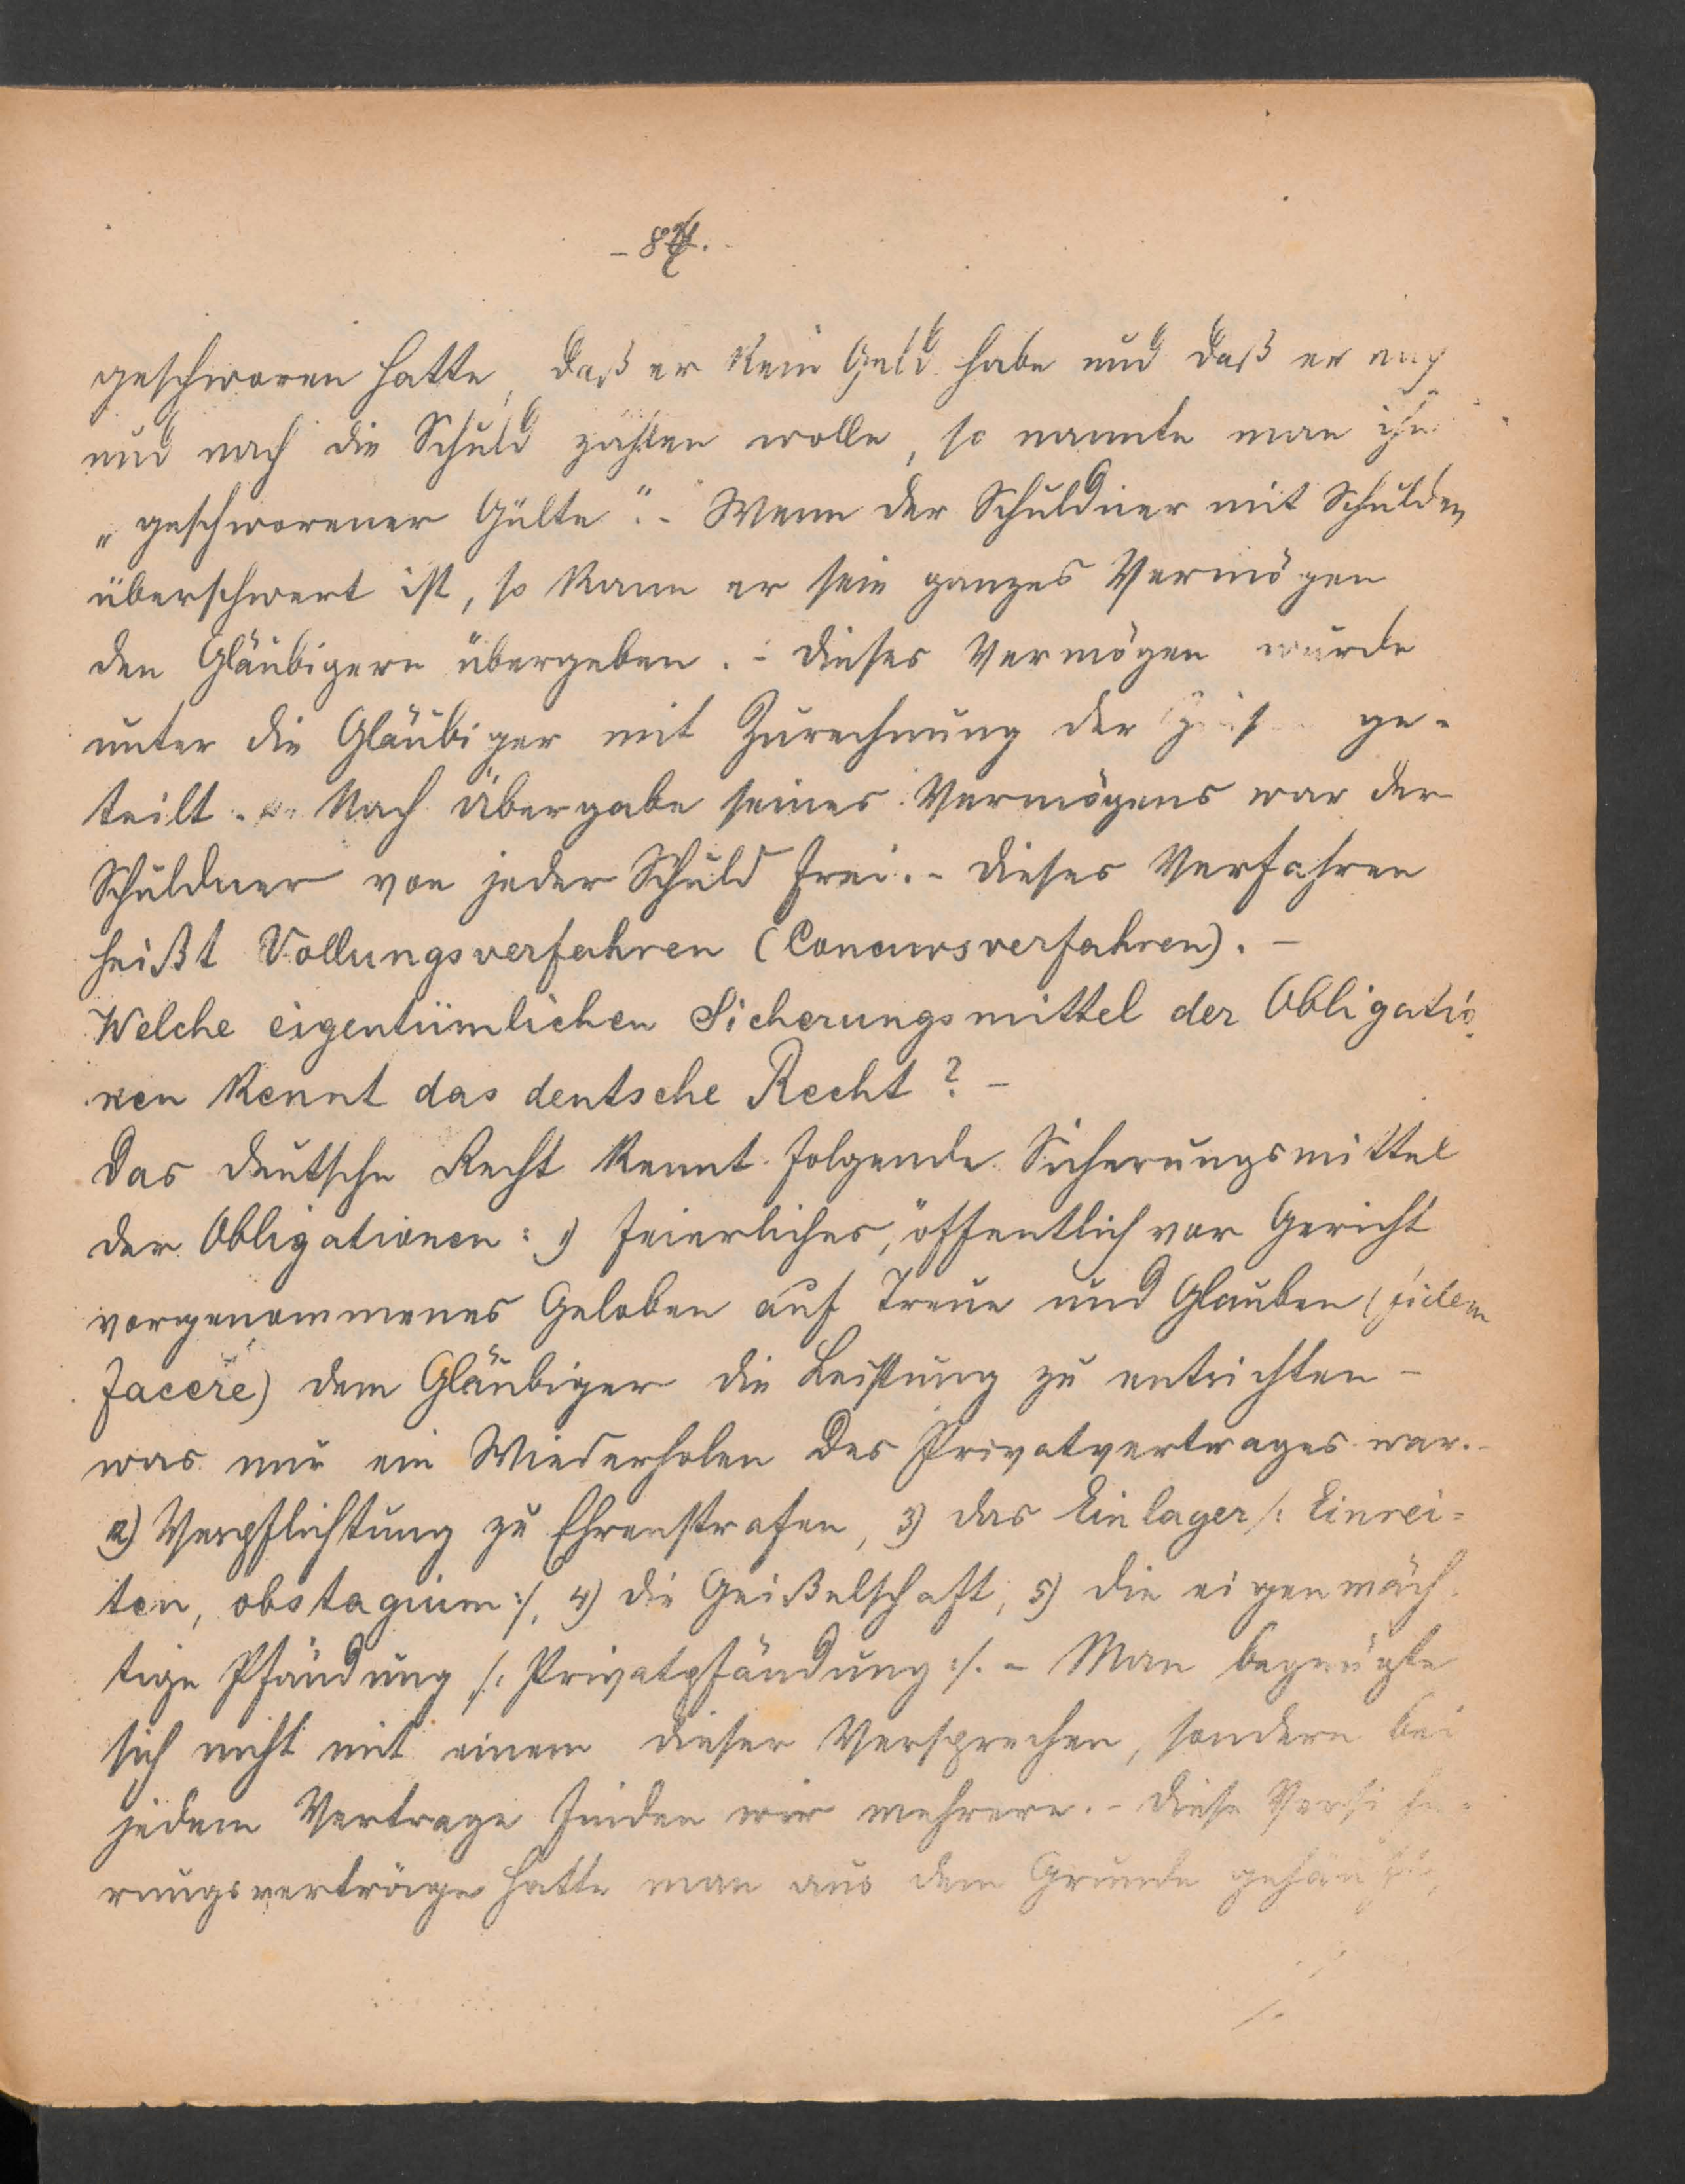 geschworen hatte, daß er kein Geld habe und daß er nach
und nach die Schuld zahlen wolle, so nannte man ihn
„geschworener Gülte". - Wenn der Schuldner mit Schulden
überschwert ist, so kann er sein ganzes Vermögen
den Gläubigern übergeben. - Dieses Vermögen wurde
unter die Gläubiger mit Zurechnung der ge-
teilt. - Nach Übergabe seines Vermögens war der
Schuldner von jeder Schuld frei. - Dieses Verfahren
heißt Vollungsverfahren (Concursverfahren). -
Welche eigentümlichen Sicherungsmittel der Obligatio-
nen kennt das deutsche Recht? -
Das deutsche Recht kennt folgende Sicherungsmittel
der Obligationen: 1) feierliches, öffentlich vor Gericht
vorgenommenes Geloben auf Treue und Glauben (fidem
facere) dem Gläubiger die Leistung zu entrichten -
was nur ein Wiederholen des Privatvertrages war. -
2) Verpflichtung zu Ehrenstrafen, 3) das Einlager /: Einrei=
ten, obstagium :/, 4) die Geißelschaft, 5) die eigenmäch-
tige Pfändung /: Privatpfändung :/. - Man begnügte
sich nicht mit einem dieser Versprechen, sondern bei
jedem Vertrage finden wir mehrere. - Diese Versiche-
rungsverträge hatte man aus dem Grunde gehäuft,